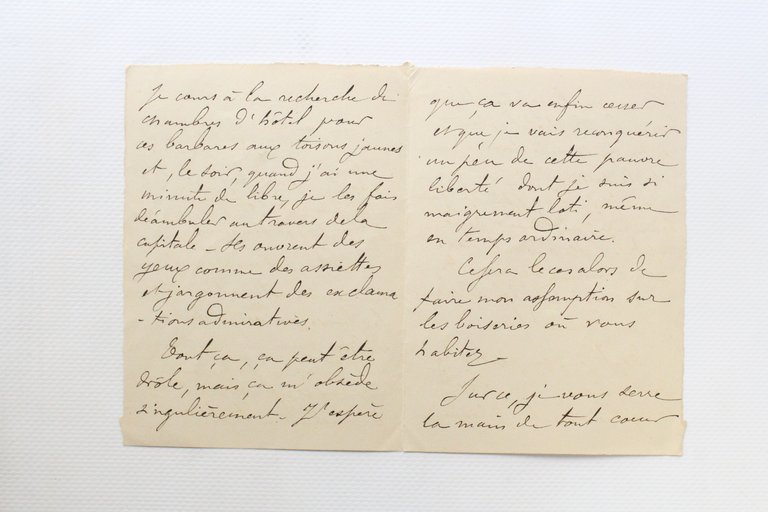 je cours à la recherche de
chambres d'hôtel pour
ces barbares aux toisons jaunes
et, le soir, quand j'ai une
minute de libre, je les fais
déambuler au travers de la
capitale - Ils ouvrent des
yeux comme des assiettes
et jargonnent des exclama
-tions admiratives.
Tout ça, ça peut être
drôle, mais ça m'obsède
singulièrement. J'espère
que ça va enfin cesser
et que je vais reconquérir
un peu de cette pauvre
liberté dont je suis si
maigrement loti, même
en temps ordinaire.
Ce sera le cas alors de
faire mon assomption sur
les boiseries où vous
habitez.
Sur ce, je vous serre
la main de tout coeur